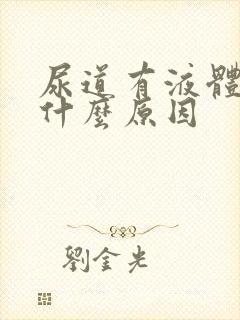 尿道有液體
什麼原因
劉金光